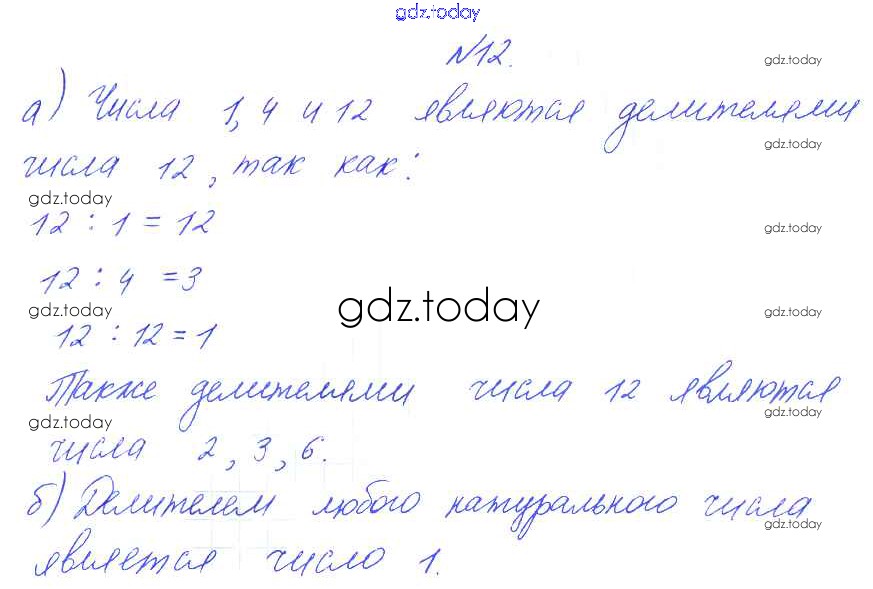 gdz.today
№12.
gdz.today
а) Числа 1, 4 и 12 являются делителями
gdz.today
числа 12, так как:
gdz.today
12 : 1 = 12
gdz.today
12 : 4 = 3
gdz.today
gdz.today
gdz.today
12 : 12 = 1
Также делителями числа 12 являются
gdz.today
gdz.today
числа 2, 3, 6.
б) Делителем любого натурального числа
gdz.today
является число 1.